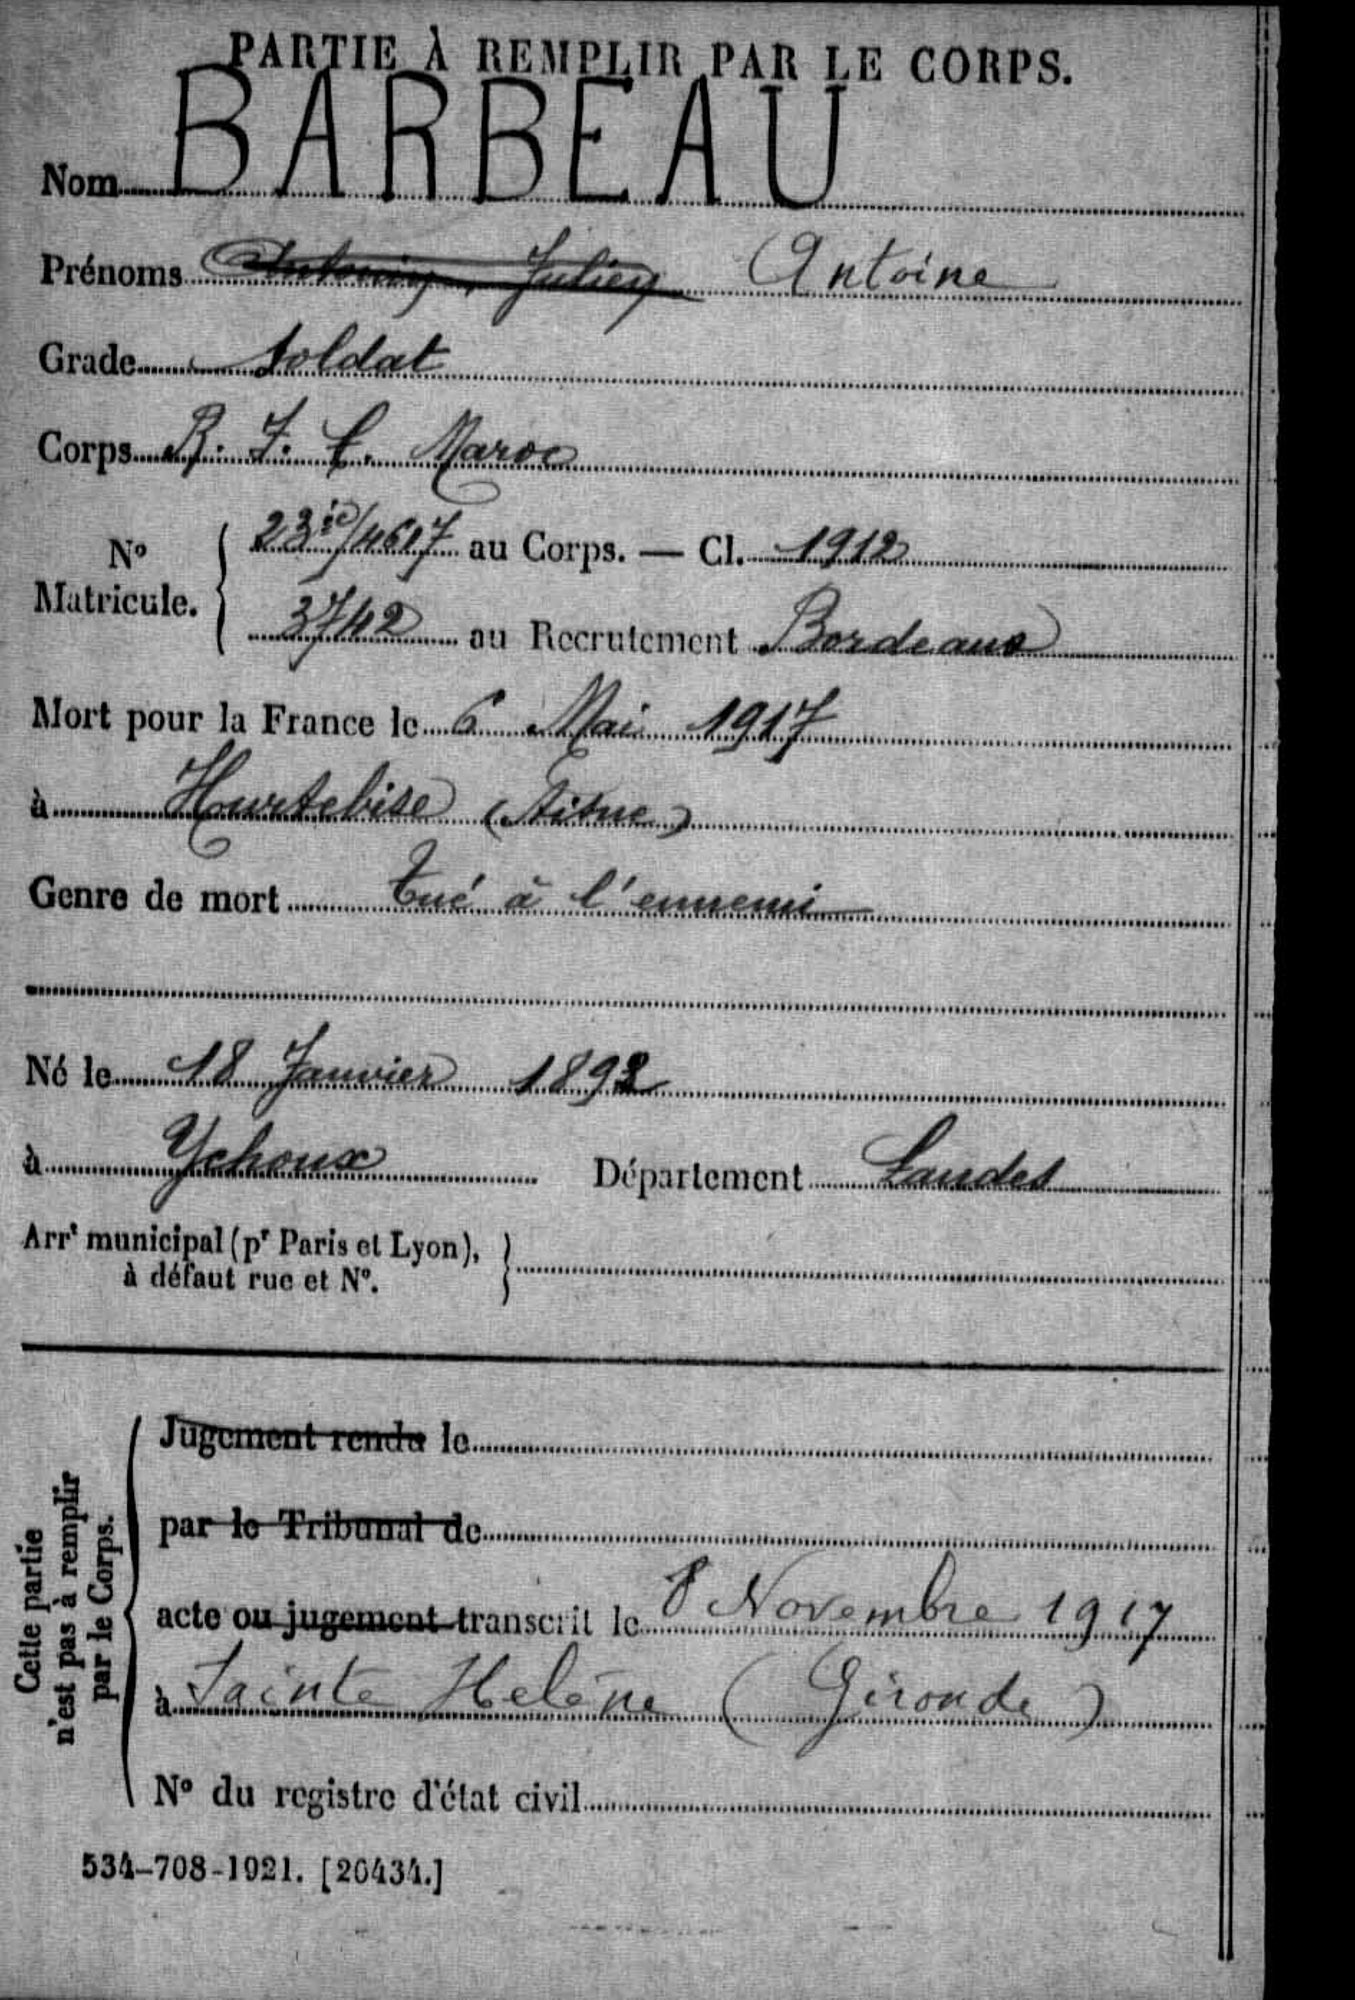 PARTIE À REMPLIR PAR LE CORPS.
Nom BARBEAU
Prénoms Antonin, Julien Antoine
Grade Soldat
Corps R. I. C. Maroc
No Matricule. 23ic/4617 au Corps. — Cl. 1912
3742 au Recrutement Bordeaux
Mort pour la France le 6 Mai 1917
à Hurtebise (Aisne)
Genre de mort Tué à l'ennemi
Né le 18 Janvier 1892
à Ychoux Département Landes
Arrt municipal (pr Paris et Lyon),
à défaut rue et No.
Cette partie
n'est pas à remplir
par le Corps.
Jugement rendu le
par le Tribunal de
acte ou jugement transcrit le 8 Novembre 1917
à Sainte Helène (Gironde)
No du registre d'état civil
534-708-1921. [26434.]